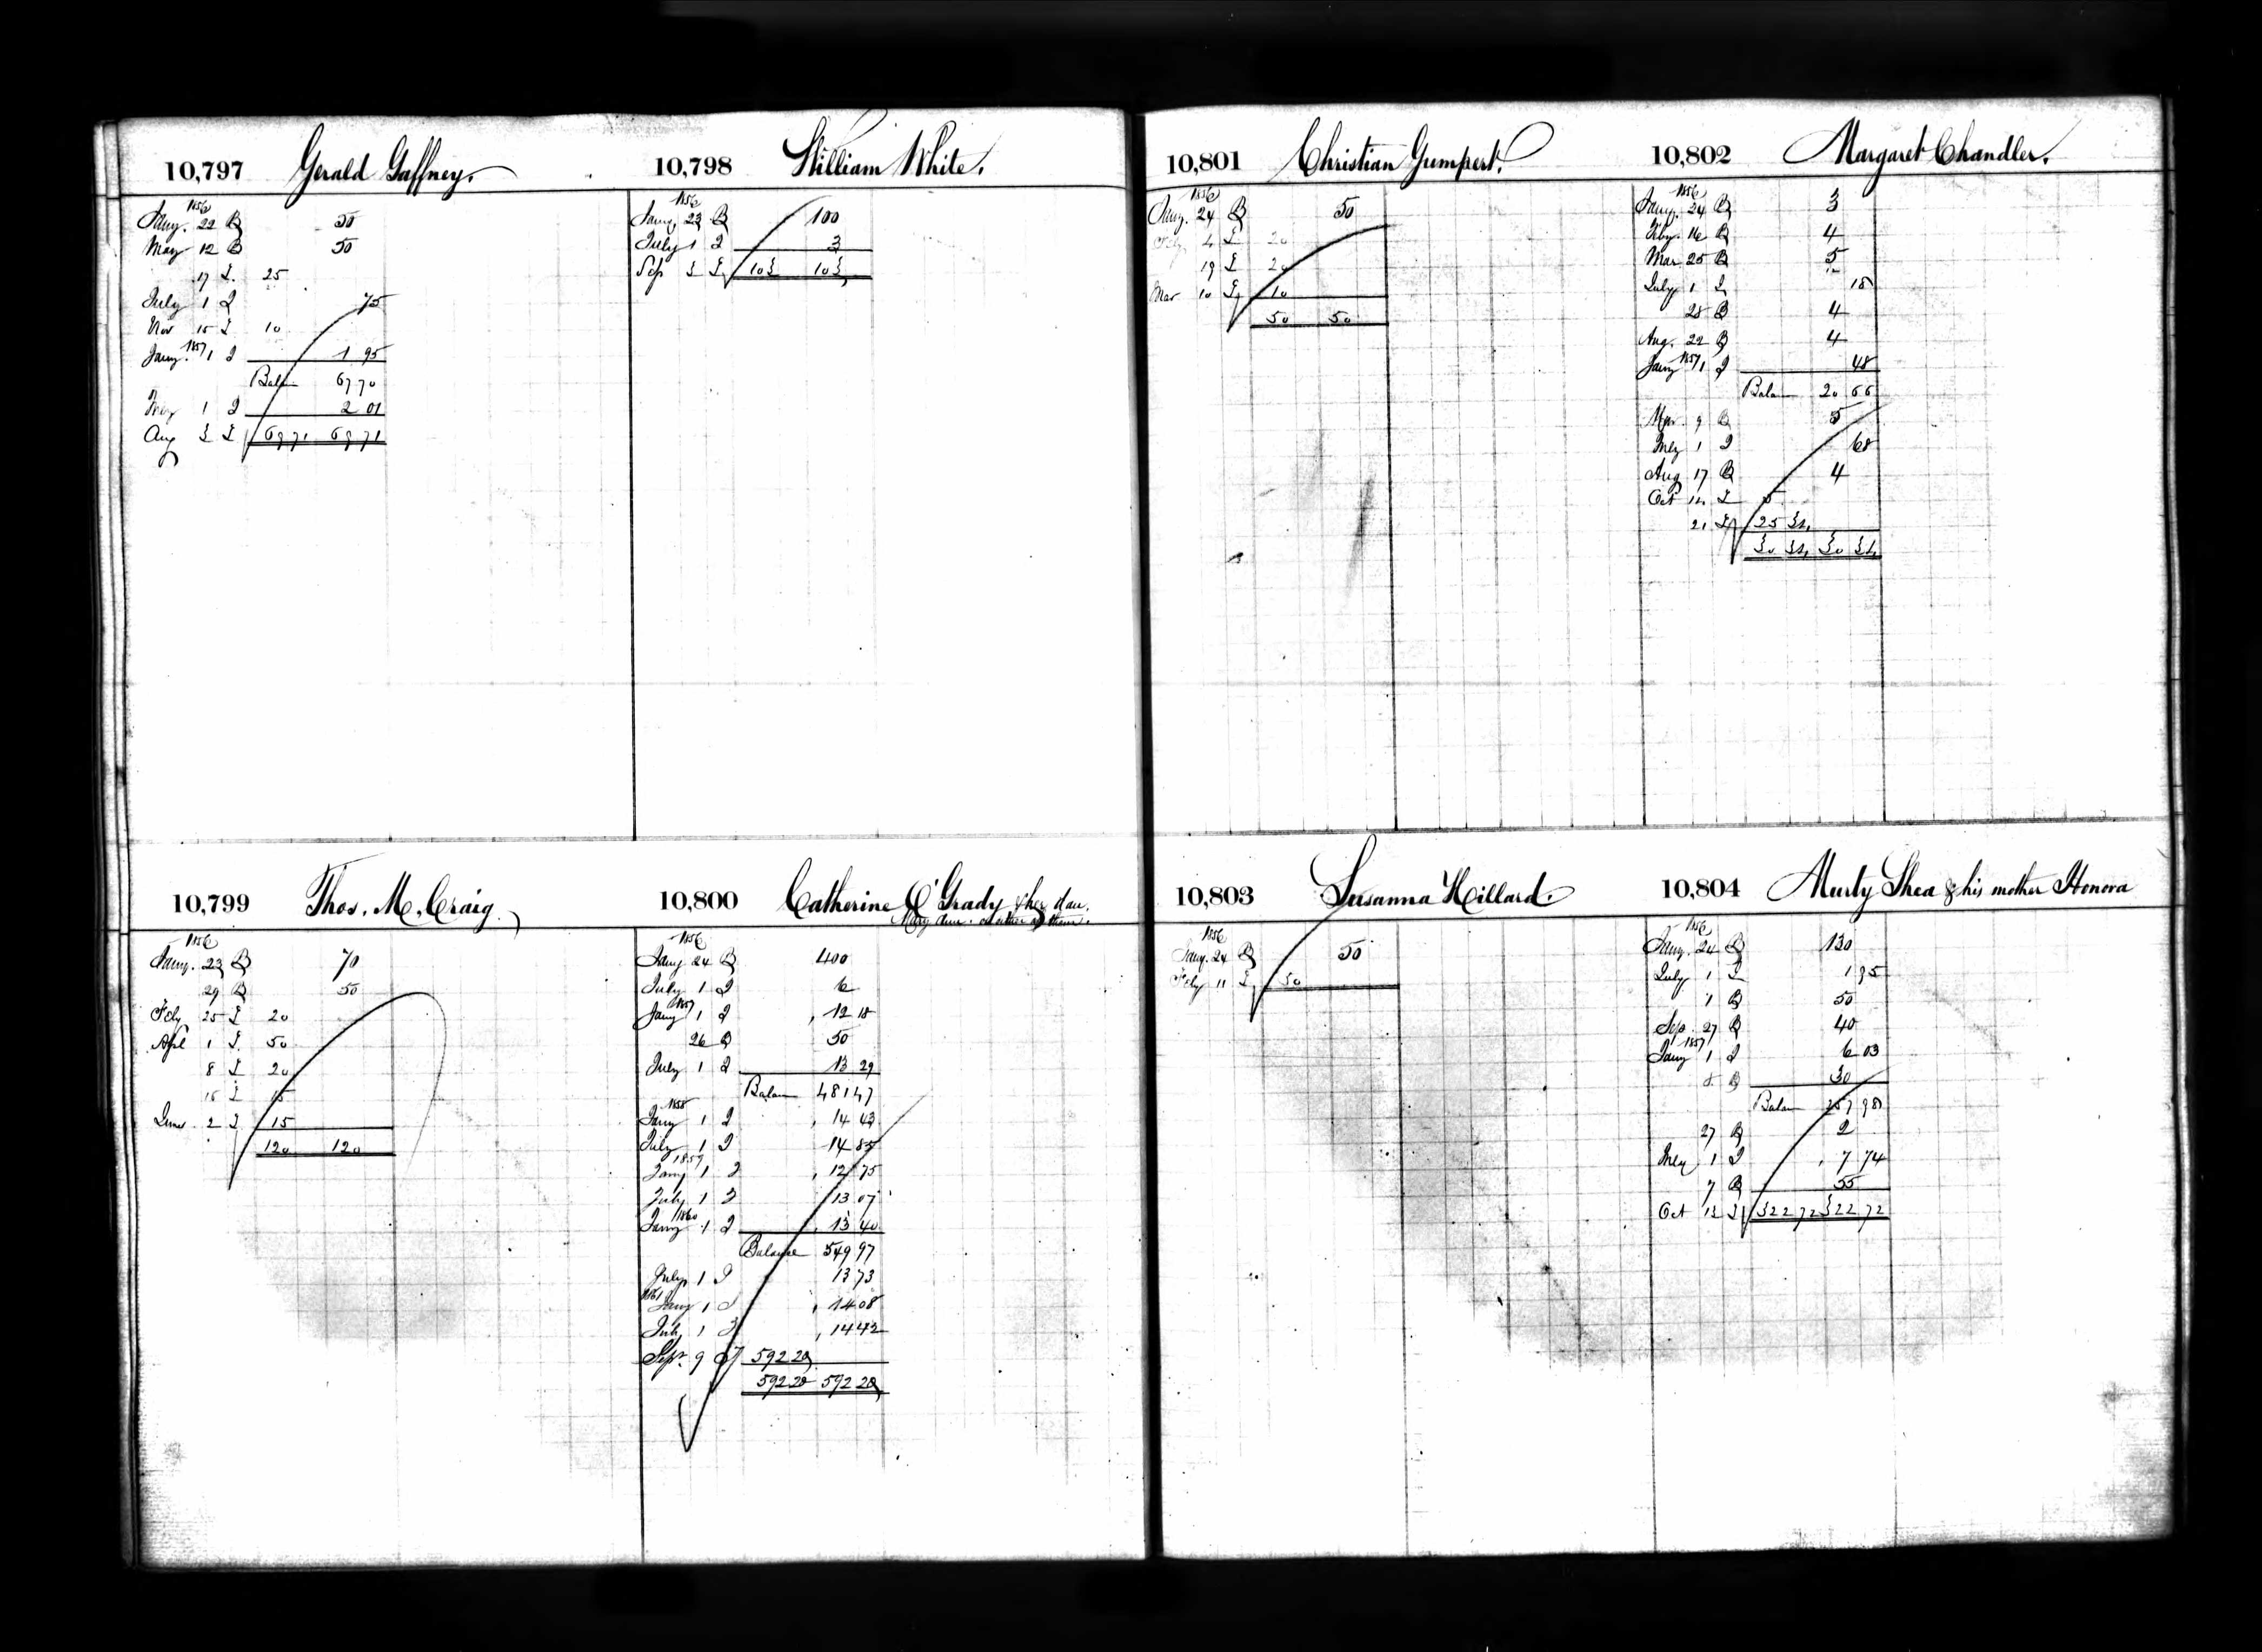 10,797 Gerald Gaffney.
1856
Jany. 22 B 50
May 12 B 50
17 D. 25
July 1 I 75
Nov 15 D 10
Jany. 1857 1 I 1 95
Balan 67 70
July 1 I 2 01
Aug 3 D 69 71 69 71
10,798 William White.
1856
Jany 23 B 100
July 1 I 3
Sep 3 D 103 103
10,799 Thos. McCraig
1856
Jany. 23 B 70
29 B 50
Feby 25 D 20
Apl 1 D. 50
8 D 20
15 D 15
June 2 D 15
120 120
10,800 Catherine O'Grady & her dau.
Mary Ann. or either of them.
1856
Jany 24 B 400
July 1 I 6
Jany 1857 1 I 12 18
26 B 50
July 1 I 13 29
Balan 481 47
1858
Jany 1 I 14 43
July 1 I 14 85
1859
Jany 1 I 12 75
July 1 I 13 07
Jany 1860 1 I 13 40
Balance 549 97
July 1 I 13 73
1861
Jany 1 I 14 08
July 1 I 14 42
Sept. 9 D 592 20
592 20 592 20
10,801 Christian Gumpert.
1856
Jany. 24 B 50
Feby 4 D 20
19 D 20
Mar 10 D 10
50 50
10,802 Margaret Chandler.
1856
Jany. 24 B 3
Feby. 16 B 4
Mar 25 B 5
July 1 I 18
25 B 4
Aug. 22 B 4
Jany 1857 1 I 48
Balan 20 66
Apr. 9 B 5
July 1 I 68
Aug 17 B 4
Oct 12 D 5
21 D 25 34
30 34 30 34
10,803 Susanna Hillard.
1856
Jany. 24 B 50
Feby 11 D 50
10,804 Murty Shea & his mother Honora
1856
Jany. 24 B 130
July 1 I 1 95
1 B 50
Sep. 27 B 40
1857
Jany 1 I 6 03
8 B 30
Balan 257 98
27 B 2
July 1 I 7 74
7 B 55
Oct 13 D 322 72 322 72